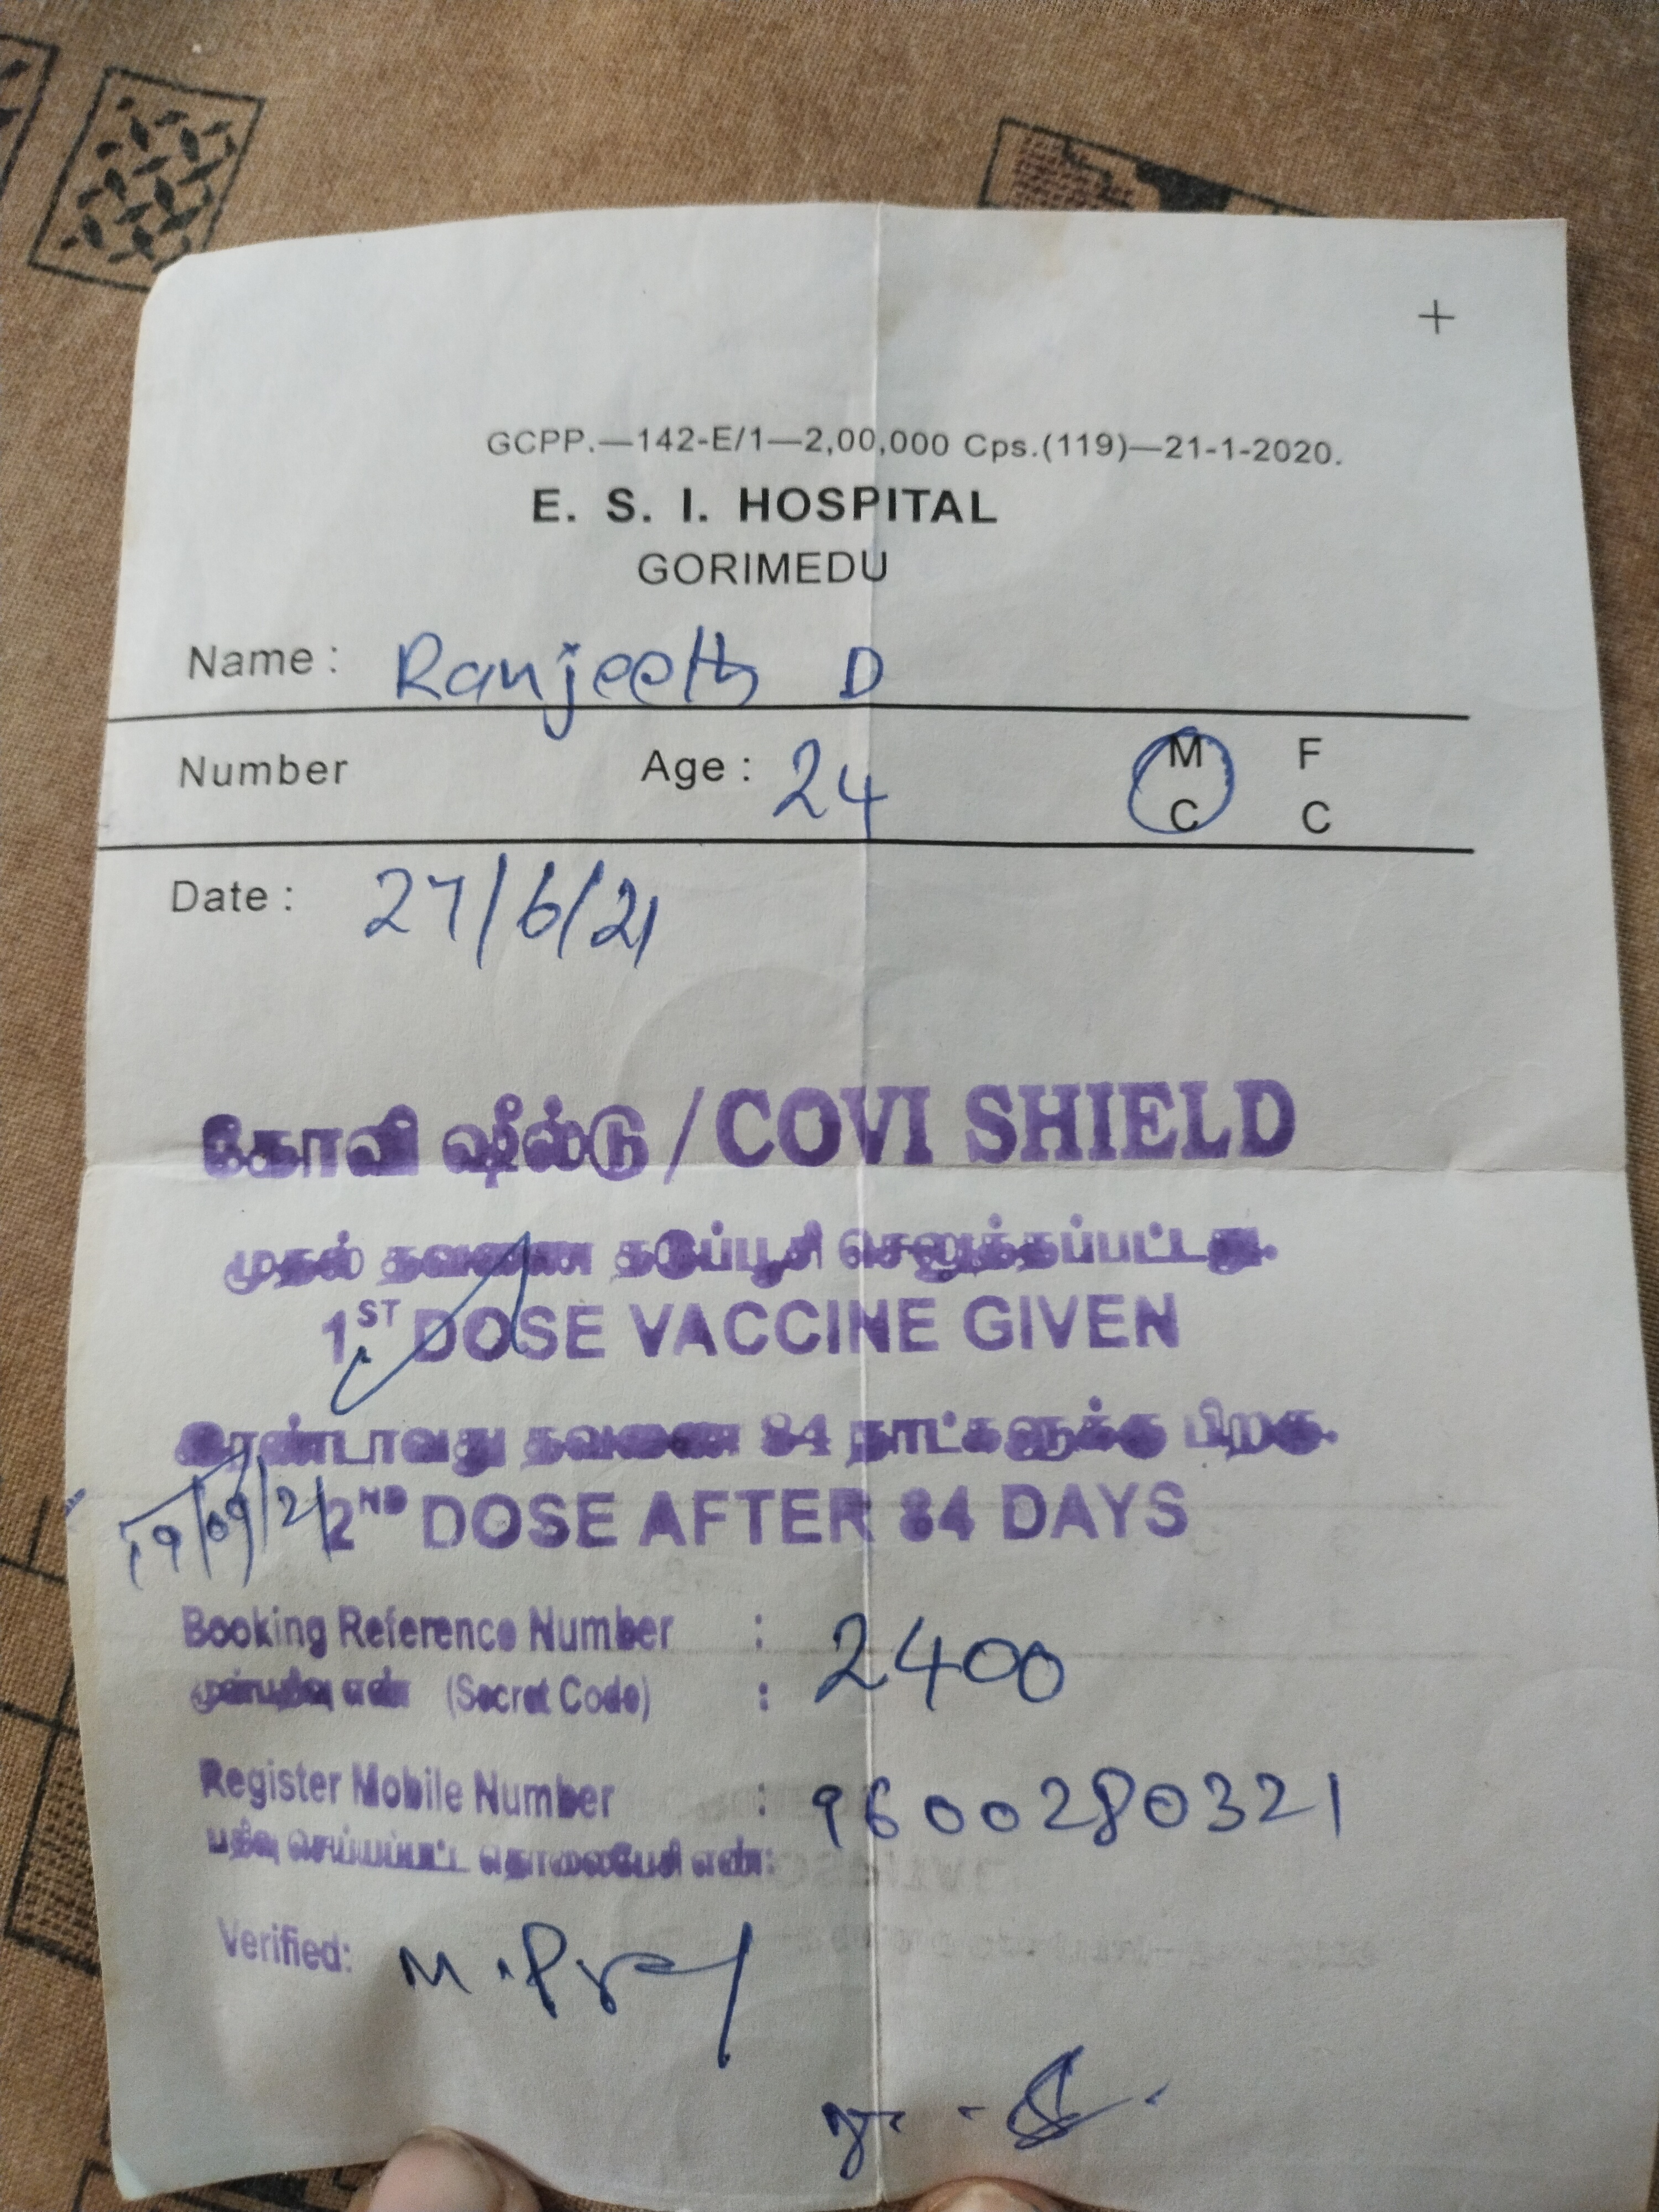 +
GCPP.—142-E/1—2,00,000 Cps.(119)—21-1-2020.
E. S. I. HOSPITAL
GORIMEDU
Name : Ranjeeth D
Number Age : 24 M F
C C
Date : 27/6/21
கோவி ஷீல்டு / COVI SHIELD
முதல் தவணை தடுப்பூசி செலுத்தப்பட்டது.
1ST DOSE VACCINE GIVEN
இரண்டாவது தவணை 84 நாட்களுக்கு பிறகு.
19/09/21 2ND DOSE AFTER 84 DAYS
Booking Reference Number : 2400
முன்பதிவு எண் (Secret Code) :
Register Mobile Number : 9600280321
பதிவு செய்யப்பட்ட தொலைபேசி எண்:
Verified: